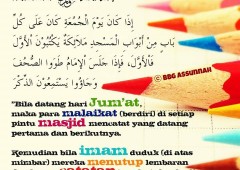 إِذَا كَانَ يَوْمُ الْجُمُعَةِ كَانَ عَلَى كُلِّ
بَابٍ مِنْ أَبْوَابِ الْمَسْجِدِ مَلَائِكَةٌ يَكْتُبُونَ الْأَوَّلَ
فَالْأَوَّلَ، فَإِذَا جَلَسَ الْإِمَامُ طَوَوْا الصُّحُفَ
وَجَاؤُوا يَسْتَمِعُونَ الذِّكْرَ
© BBG ASSUNNAH
"Bila datang hari Jum'at,
maka para malaikat (berdiri) di setiap
pintu masjid mencatat yang datang
pertama dan berikutnya.
Kemudian bila imam duduk (di atas
mimbar) mereka menutup lembaran